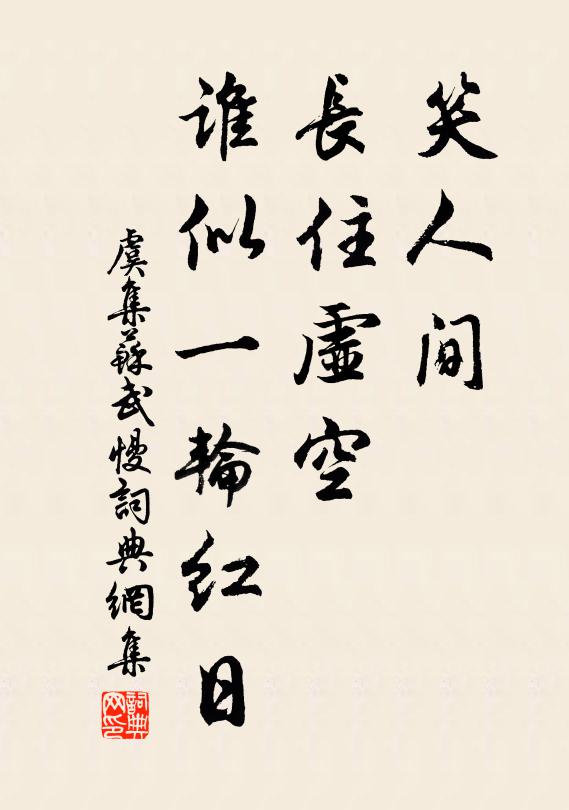 笑人間
長住虛空
誰似一輪紅日
虞集蘇武慢詞典網集
詞典网印